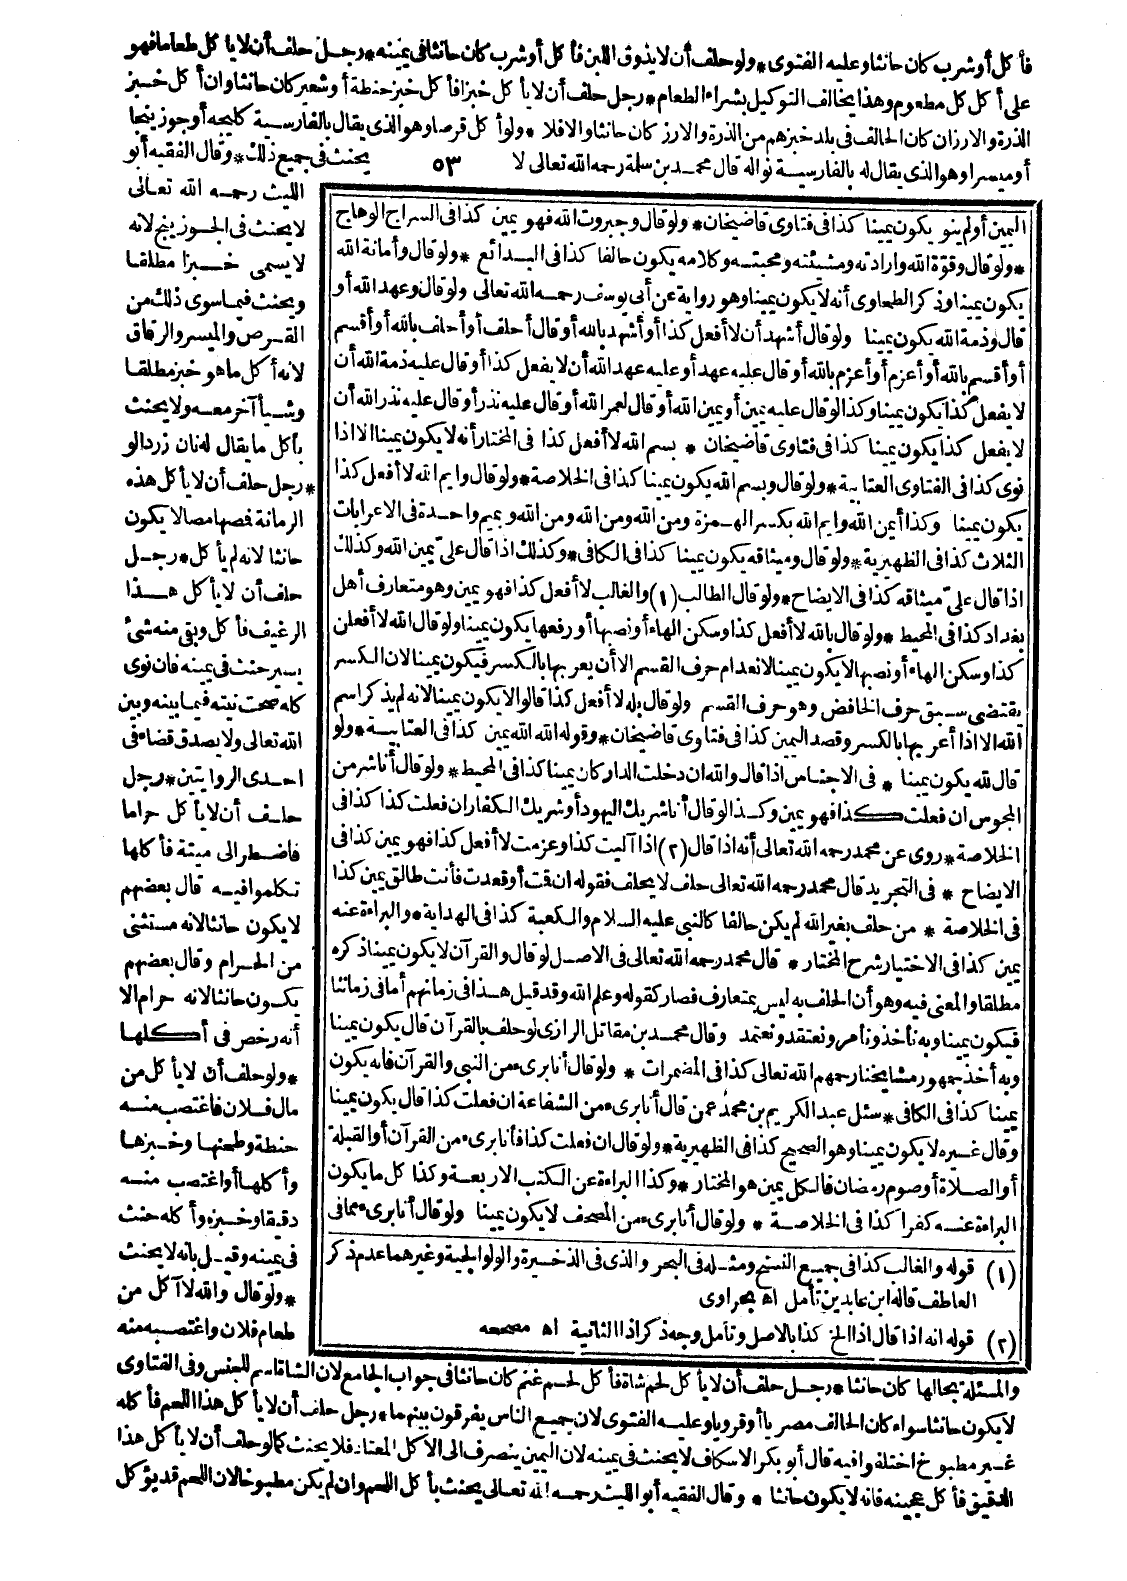 فأكل أو شرب كان حانثا وعليه الفتوى * ولو حلف أن لا يذوق اللبن فأكل أو شرب كان حانثا فى يمينه * رجل حلف أن لا يأكل طعاما فهو
على أكل كل مطعوم وهذا يخالف التوكيل بشراء الطعام * رجل حلف أن لا يأكل خبزا فأكل خبز حنطة أو شعير كان حانثا وان أكل خبز
الذرة والارز ان كان الحالف فى بلد خبزهم من الذرة والارز كان حانثا والا فلا * ولو أكل قرصا وهو الذى يقال بالفارسية كليجه أو جوزينجا
أو ميسرا وهو الذى يقال له بالفارسية نواله قال محمد بن سلمة رحمه الله تعالى لا
٥٣
يحنث فى جميع ذلك * وقال الفقيه أبو
الليث رحمه الله تعالى
لا يحنث فى الجوزينج لانه
لا يسمى خبزا مطلقا
ويحنث فيما سوى ذلك من
القرص والميسر والرقاق
لانه أكل ما هو خبز مطلقا
وشيأ آخر معه ولا يحنث
بأكل ما يقال له نان زردالو
* رجل حلف أن لا يأكل هذه
الرمانة فمصها مصا لا يكون
حانثا لانه لم يأكل * رجل
حلف أن لا يأكل هذا
الرغيف فأكل وبقى منه شئ
يسير حنث فى يمينه فان نوى
كله صحت نيته فيما بينه وبين
الله تعالى ولا يصدق قضاء فى
احدى الروايتين * رجل
حلف أن لا يأكل حراما
فاضطر الى ميتة فأكلها
تكلموا فيه قال بعضهم
لا يكون حانثا لانه مستثنى
من الحرام وقال بعضهم
يكون حانثا لانه حرام الا
أنه رخص فى أكلها
* ولو حلف أن لا يأكل من
مال فلان فاغتصب منه
حنطة وطحنها وخبزها
وأكلها أو اغتصب منه
دقيقا وخبزه وأكله حنث
فى يمينه وقيل بأنه لا يحنث
* ولو قال والله لا آكل من
طعام فلان واغتصبه منه
اليمين أو لم ينو يكون يمينا كذا فى فتاوى قاضيخان * ولو قال وجبروت الله فهو يمين كذا فى السراج الوهاج
* ولو قال وقوة الله وارادته ومشيئته ومحبته وكلامه يكون حالفا كذا فى البدائع * ولو قال وأمانة الله
يكون يمينا وذكر الطحاوى أنه لا يكون يمينا وهو رواية عن أبى يوسف رحمه الله تعالى ولو قال وعهد الله أو
قال وذمة الله يكون يمينا ولو قال أشهد أن لا أفعل كذا أو أشهد بالله أو قال أحلف أو أحلف بالله أو أقسم
أو أقسم بالله أو أعزم أو أعزم بالله أو قال عليه عهد أو عليه عهد الله أن لا يفعل كذا أو قال عليه ذمة الله أن
لا يفعل كذا يكون يمينا وكذا لو قال عليه يمين أو يمين الله أو قال لعمر الله أو قال عليه نذر أو قال عليه نذر الله أن
لا يفعل كذا يكون يمينا كذا فى فتاوى قاضيخان * بسم الله لا أفعل كذا فى المختار أنه لا يكون يمينا الا اذا
نوى كذا فى الفتاوى العتابية * ولو قال وبسم الله يكون يمينا كذا فى الخلاصة * ولو قال وايم الله لا أفعل كذا
يكون يمينا وكذا أيمن الله وايم الله بكسر الهمزة ومن الله ومن الله ومن الله وبميم واحدة فى الاعرابات
الثلاث كذا فى الظهيرية * ولو قال وميثاقه يكون يمينا كذا فى الكافى * وكذلك اذا قال علىّ يمين الله وكذلك
اذا قال علىّ ميثاقه كذا فى الايضاح * ولو قال الطالب (١) والغالب لا أفعل كذا فهو يمين وهو متعارف أهل
بغداد كذا فى المحيط * ولو قال بالله لا أفعل كذا وسكن الهاء أو نصبها أو رفعها يكون يمينا ولو قال الله لا أفعلن
كذا وسكن الهاء أو نصبها لا يكون يمينا لانعدام حرف القسم الا أن يعربها بالكسر فيكون يمينا لان الكسر
يقتضى سبق حرف الخافض وهو حرف القسم ولو قال بله لا أفعل كذا قالوا لا يكون يمينا لانه لم يذكر اسم
الله الا اذا أعربها بالكسر وقصد اليمين كذا فى فتاوى قاضيخان * وقوله الله الله يمين كذا فى العتابية * ولو
قال لله يكون يمينا * فى الاجناس اذا قال والله ان دخلت الدار كان يمينا كذا فى المحيط * ولو قال أنا شر من
المجوس ان فعلت كذا فهو يمين وكذا لو قال أنا شريك اليهود أو شريك الكفار ان فعلت كذا كذا فى
الخلاصة * روى عن محمد رحمه الله تعالى أنه اذا قال (٢) اذا آليت كذا وعزمت لا أفعل كذا فهو يمين كذا فى
الايضاح * فى التجريد قال محمد رحمه الله تعالى حلف لا يحلف فقوله ان قمت أو قعدت فأنت طالق يمين كذا
فى الخلاصة * من حلف بغير الله لم يكن حالفا كالنبى عليه السلام والكعبة كذا فى الهداية * والبراءة عنه
يمين كذا فى الاختيار شرح المختار * قال محمد رحمه الله تعالى فى الاصل لو قال والقرآن لا يكون يمينا ذكره
مطلقا والمعنى فيه وهو أن الحلف به ليس بمتعارف فصار كقوله وعلم الله وقد قيل هذا فى زمانهم أما فى زماننا
فيكون يمينا وبه نأخذ ونأمر ونعتقد ونعتمد وقال محمد بن مقاتل الرازى لو حلف بالقرآن قال يكون يمينا
وبه أخذ جمهور مشايخنا رحمهم الله تعالى كذا فى المضمرات * ولو قال أنا برىء من النبى والقرآن فانه يكون
يمينا كذا فى الكافى * سئل عبد الكريم بن محمد عمن قال أنا برىء من الشفاعة ان فعلت كذا قال يكون يمينا
وقال غيره لا يكون يمينا وهو الصحيح كذا فى الظهيرية * ولو قال ان فعلت كذا فأنا برىء من القرآن أو القبلة
أو الصلاة أو صوم رمضان فالكل يمين هو المختار * وكذا البراءة عن الكتب الاربعة وكذا كل ما يكون
البراءة عنه كفرا كذا فى الخلاصة * ولو قال أنا برىء من المصحف لا يكون يمينا ولو قال أنا برىء مما فى
(١) قوله والغالب كذا فى جميع النسخ ومثله فى البحر والذى فى الذخيرة والولوالجية وغيرهما عدم ذكر
العاطف قاله ابن عابدين تأمل اه بحراوى
(٢) قوله انه اذا قال اذا الخ كذا بالاصل وتأمل وجه ذكر اذا الثانية اه مصححه
والمسئلة بحالها كان حانثا * رجل حلف أن لا يأكل لحم شاة فأكل لحم غنم كان حانثا فى جواب الجامع لان الشاة اسم للجنس وفى الفتاوى
لا يكون حانثا سواء كان الحالف مصريا أو قرويا وعليه الفتوى لان جميع الناس يفرقون بينهما * رجل حلف أن لا يأكل هذا اللحم فأكله
غير مطبوخ اختلفوا فيه قال أبو بكر الاسكاف لا يحنث فى يمينه لان اليمين ينصرف الى الاكل المعتاد فلا يحنث كما لو حلف أن لا يأكل هذا
الدقيق فأكل عجينه فانه لا يكون حانثا * وقال الفقيه أبو الليث رحمه الله تعالى يحنث بأكل اللحم وان لم يكن مطبوخا لان اللحم قد يؤكل